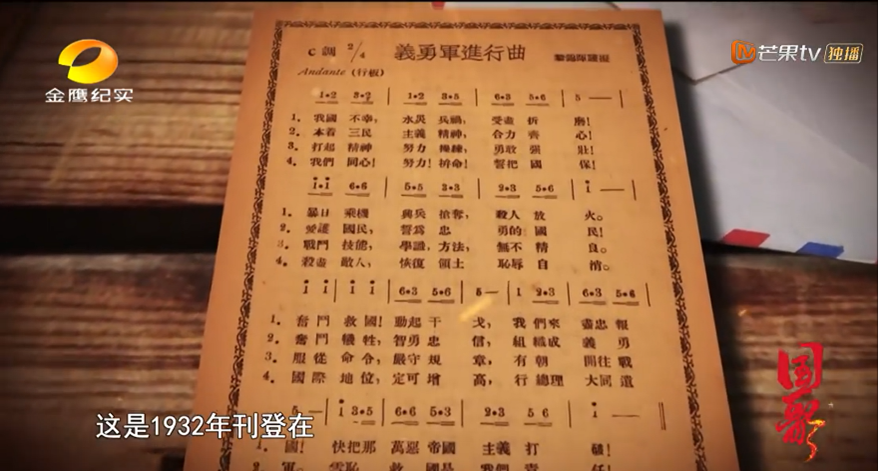 金鹰纪实
芒果tv 独播
C調 2/4 義勇軍進行曲
Andante (行板)
1•2 3•2 | 1•2 3•5 | 6•3 5•6 | 5 —
1. 我國 不幸, 水災 兵禍, 受盡 折 磨!
2. 本着 三民 主義 精神, 合力 齊 心!
3. 打起 精神 努力 操練, 勇敢 強 壯!
4. 我們 同心! 努力! 拚命! 誓把 國 保!
i•i 6•6 | 5•5 3•3 | 2•3 5•6 | i —
1. 暴日 乘機 興兵 搶奪, 殺人 放 火。
2. 愛護 國民, 誓爲 忠 勇的 國 民!
3. 戰鬥 技能, 學識, 方法, 無不 精 良。
4. 殺盡 敵人, 恢復 領土 恥辱 自 消。
i i | i i | 6•3 5•6 | 5 — | 1 2•3 | 6•3 5•6
1. 奮鬥 救國! 動起 干 戈, 我們來 盡忠 報
2. 奮鬥 犧牲, 智勇 忠 信, 組織成 義 勇
3. 服從 命令, 嚴守 規 章, 有朝 開往 戰
4. 國際 地位, 定可 增 高, 行總理 大同 遺
5 — | i 3•5 | 6•6 5•6 | 2•3 5 6 | i —
1. 國! 快把那 萬惡 帝國 主義 打 破!
2. 軍。 雪恥 救 國是 我們 責 任!
国歌
这是1932年刊登在